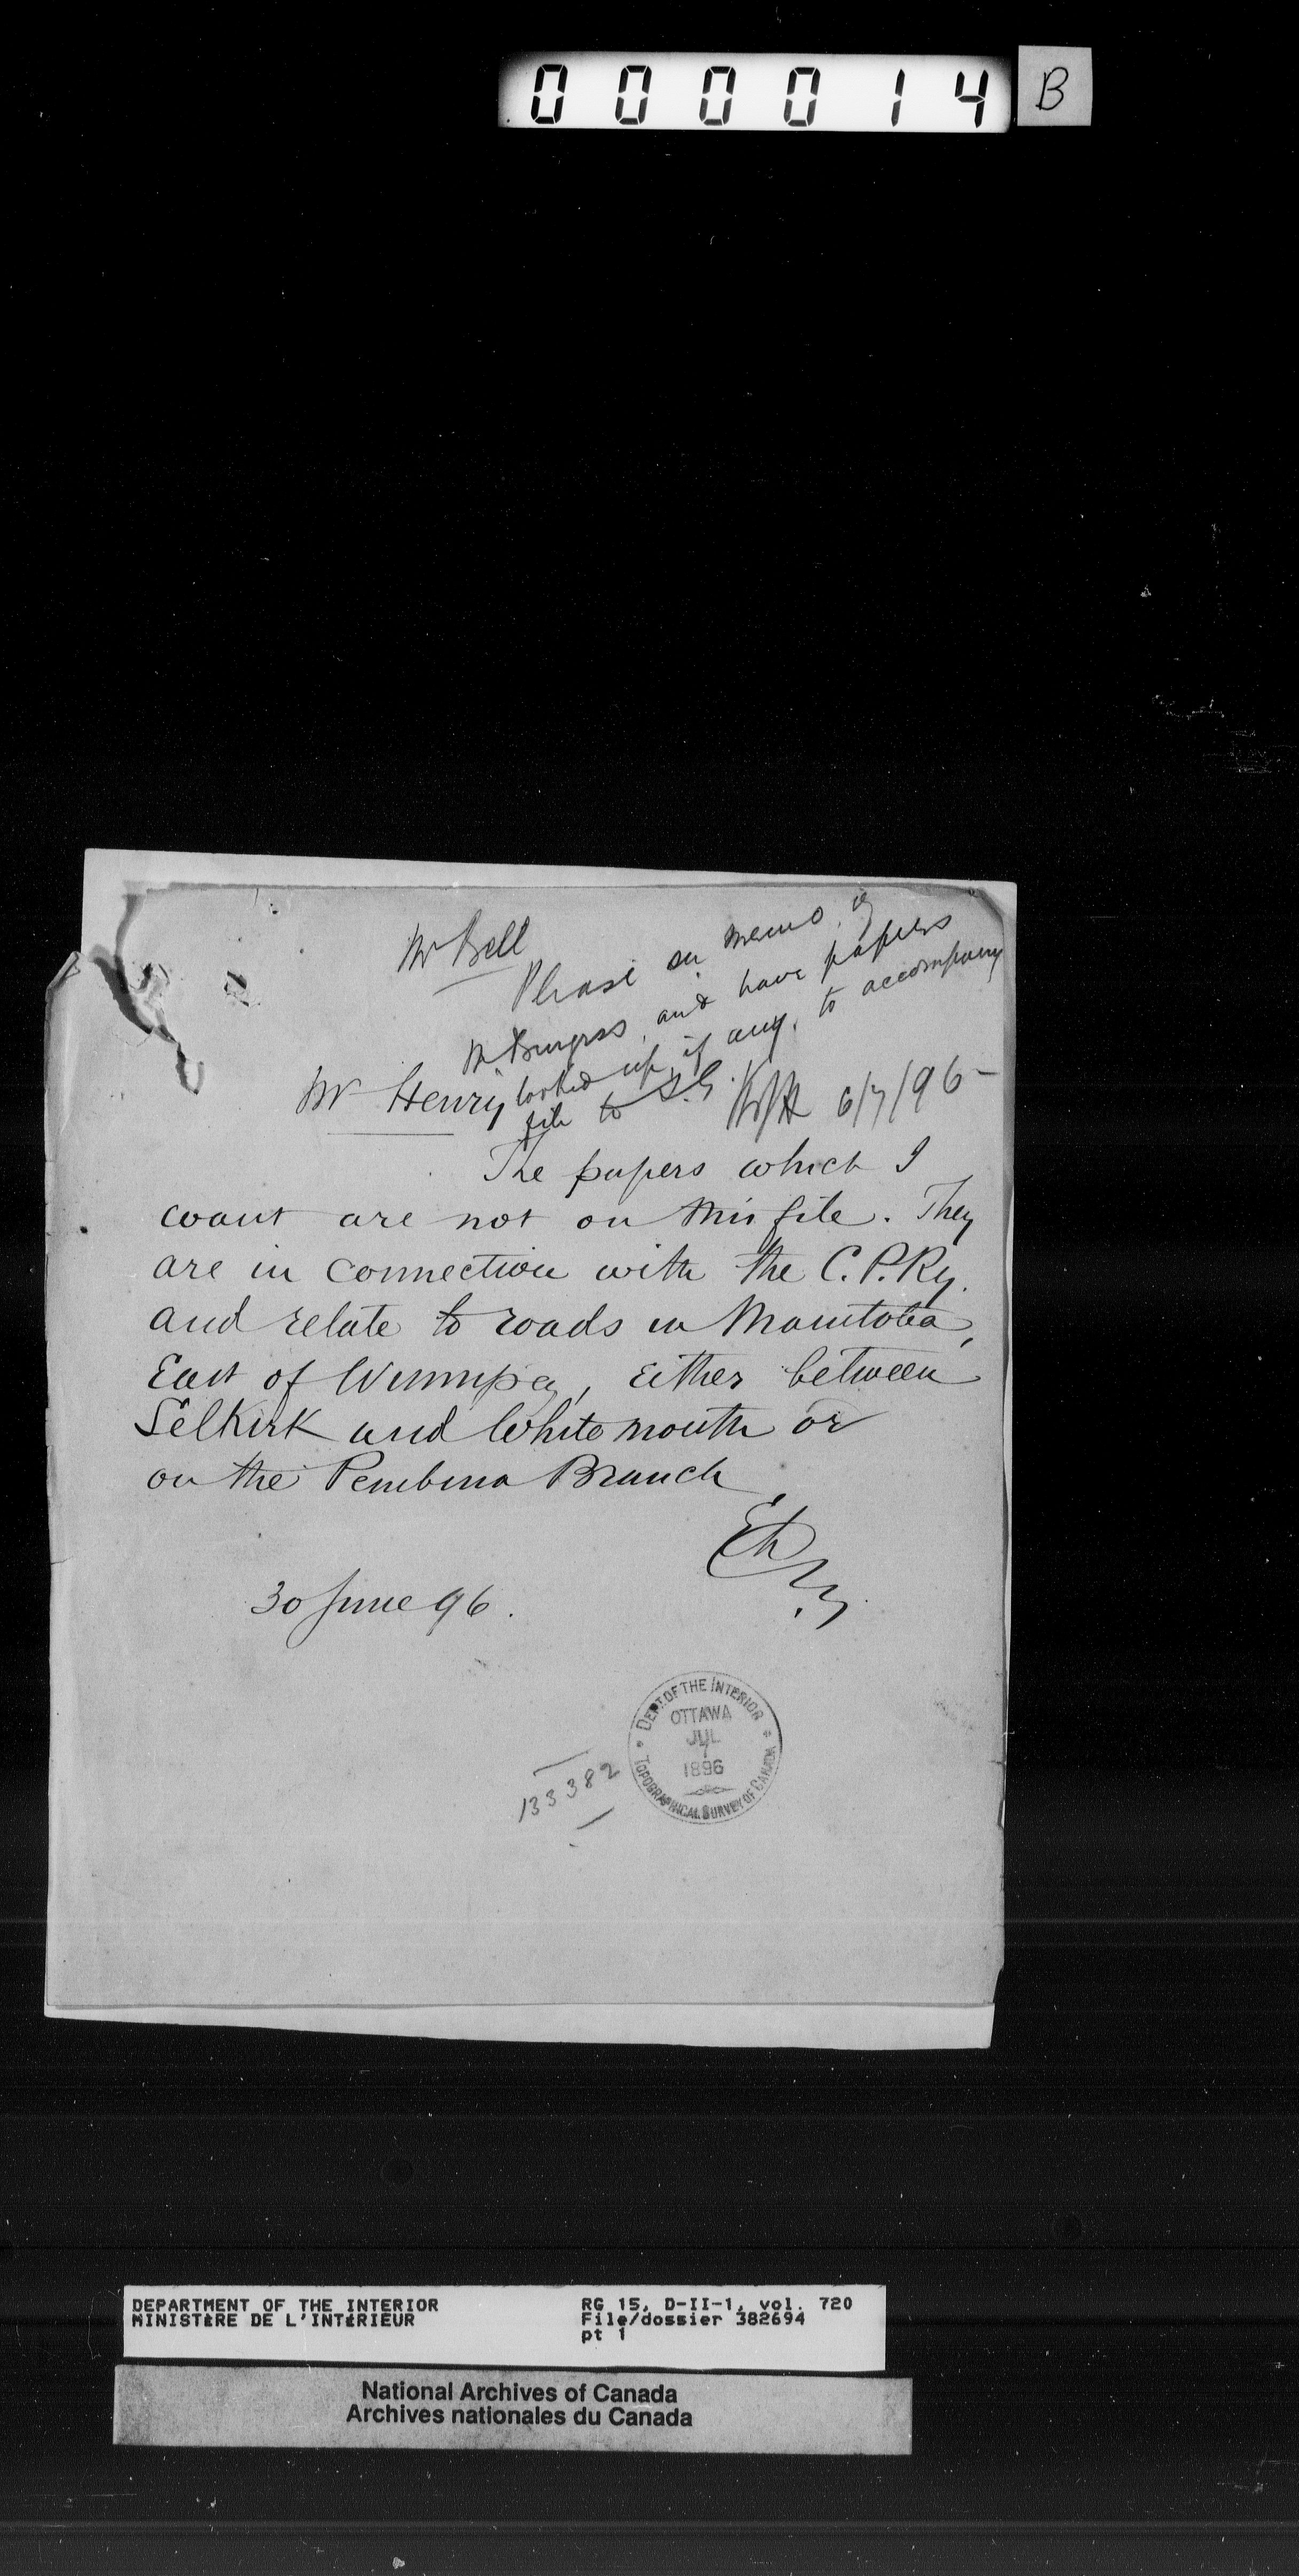 000014 B
Mr Bell
Please see memo. of
Mr Burgess, and have papers
looked up, if any, to accompany
file to S.G. 6/7/96
Mr Henry
The papers which I
want are not on this file. They
are in connection with the C.P.Ry.
and relate to roads in Manitoba,
East of Winnipeg, either between
Selkirk and Whitemouth or
on the Pembina Branch.
30 June 96.
DEPT OF THE INTERIOR
OTTAWA
JUL
7
1896
TOPOGRAPHICAL SURVEY OF CANADA
133382
DEPARTMENT OF THE INTERIOR
MINISTÈRE DE L'INTÉRIEUR
RG 15, D-II-1, vol. 720
File/dossier 382694
pt 1
National Archives of Canada
Archives nationales du Canada